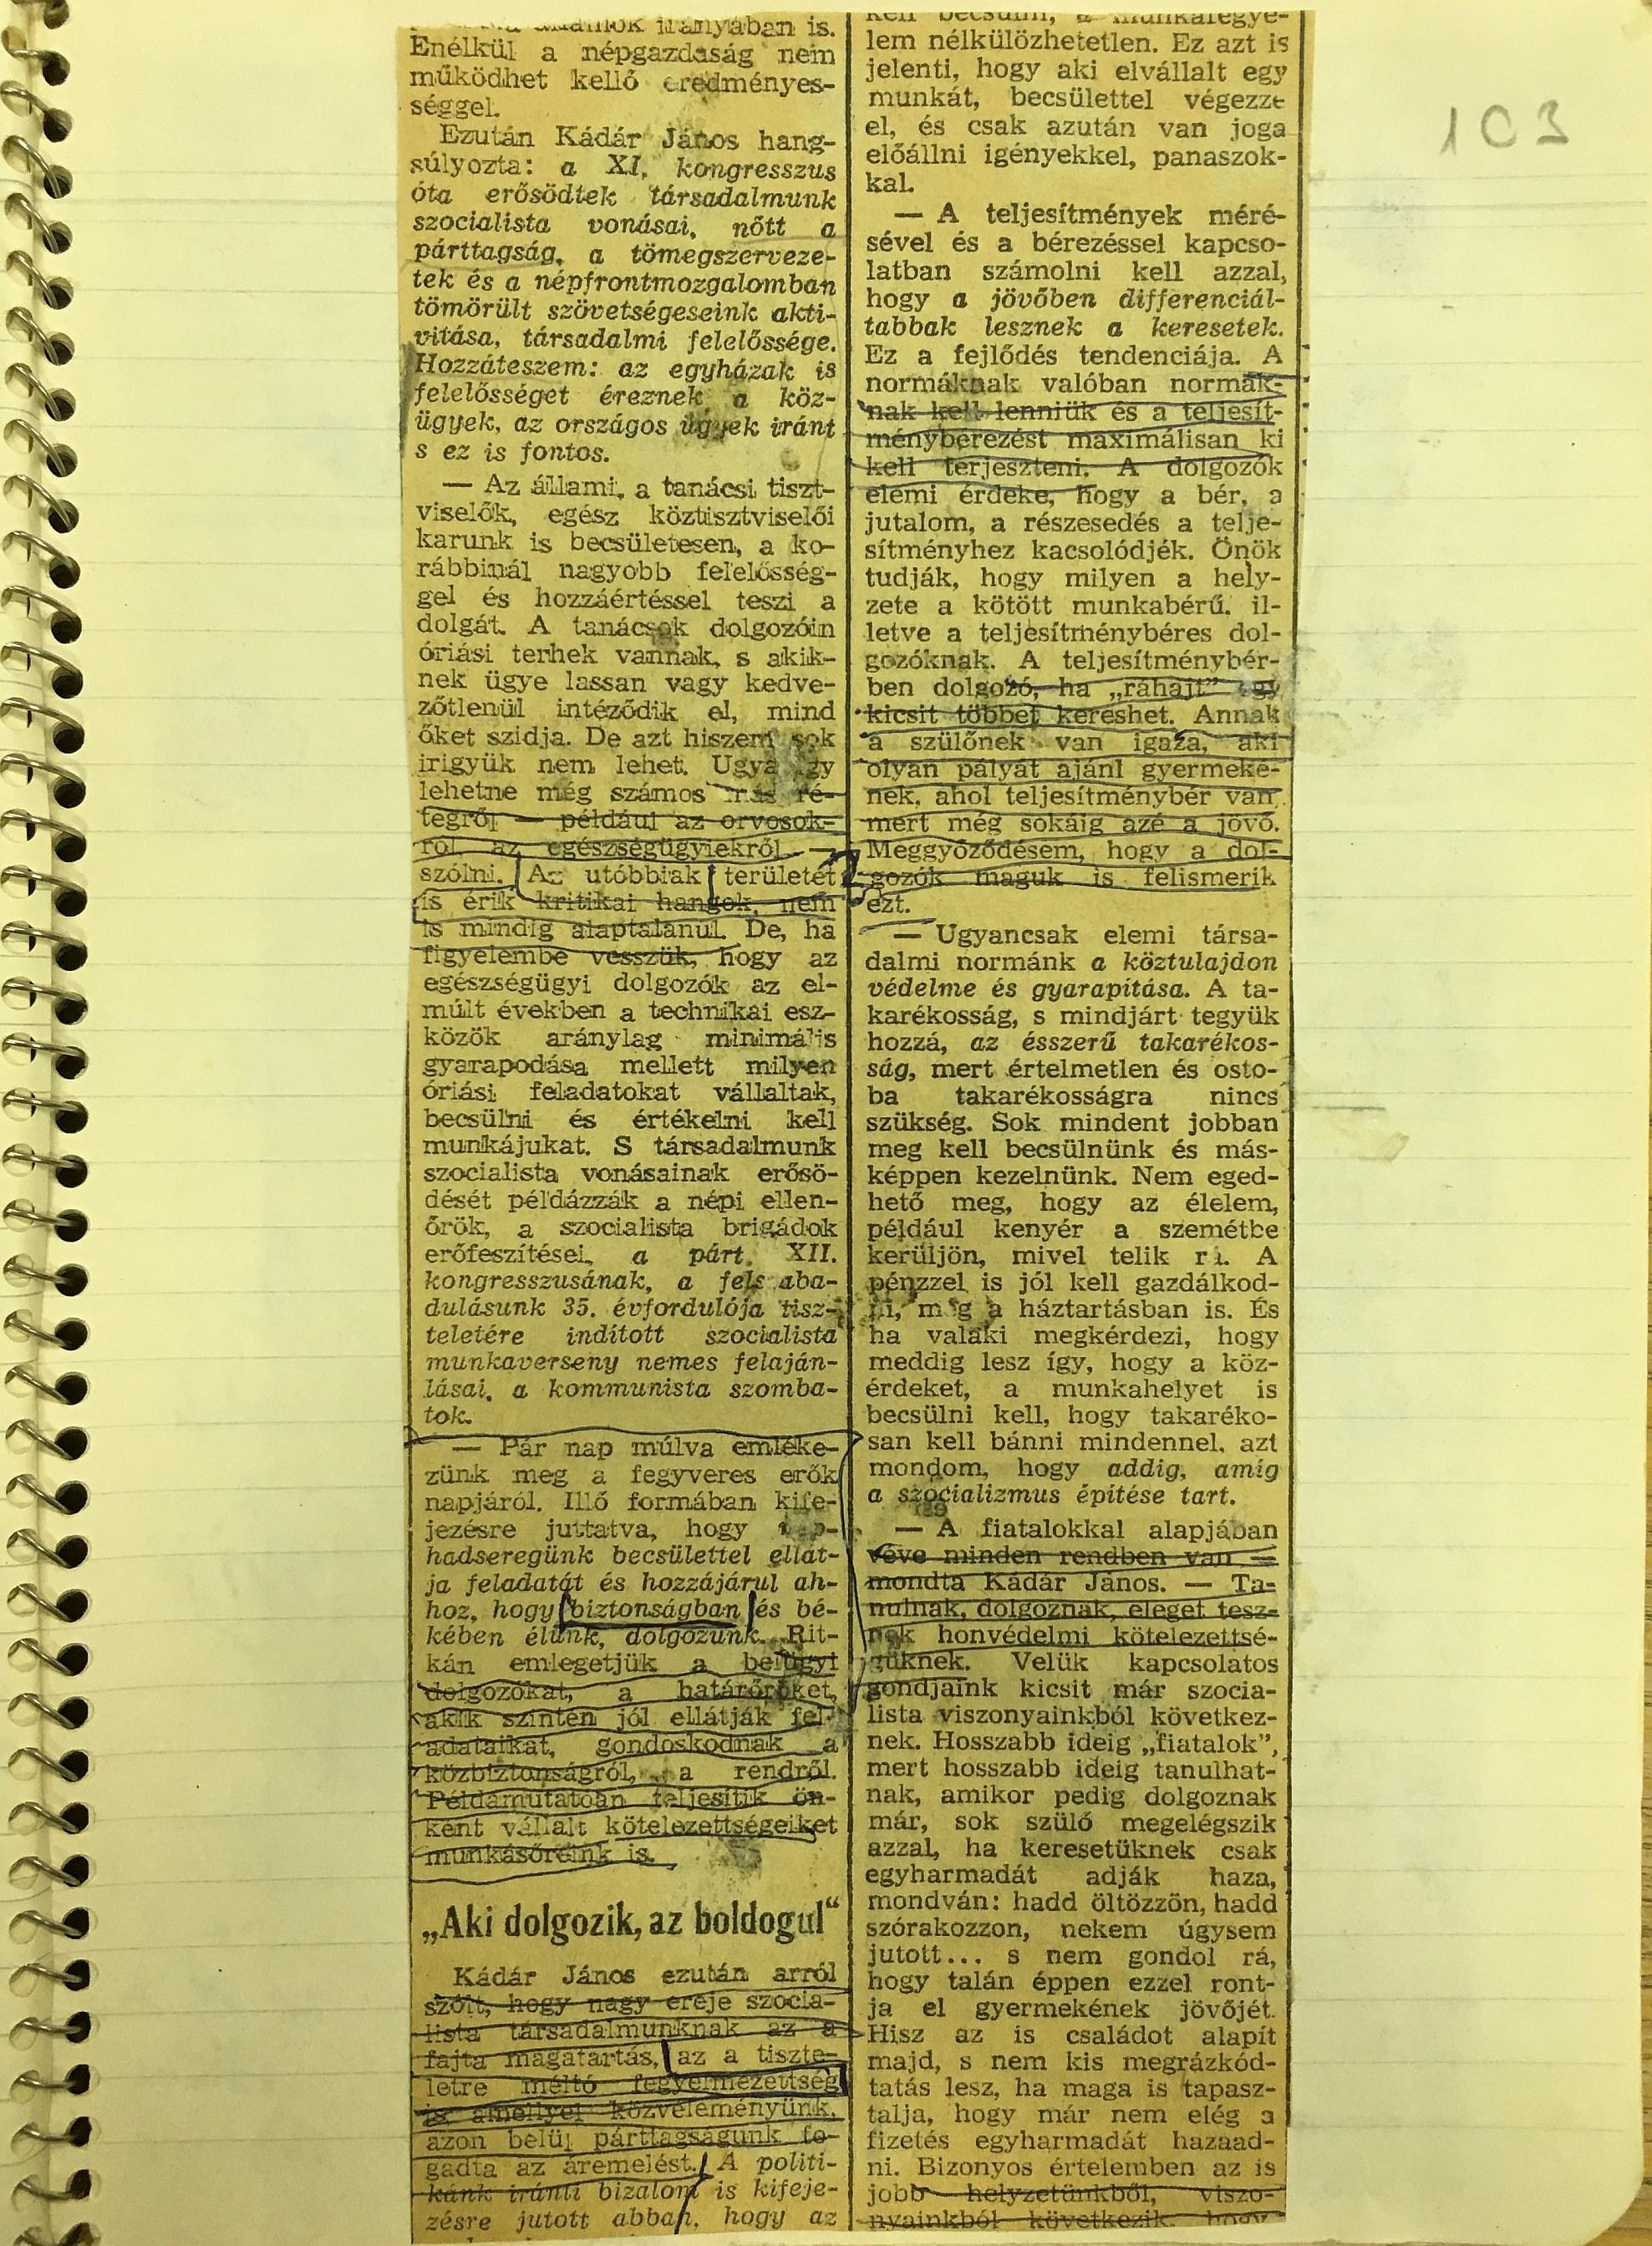 irányában is.
Enélkül a népgazdaság nem
működhet kellő eredményes-
séggel.
Ezután Kádár János hang-
súlyozta: a XI. kongresszus
óta erősödtek társadalmunk
szocialista vonásai, nőtt a
párttagság, a tömegszerveze-
tek és a népfrontmozgalomban
tömörült szövetségeseink akti-
vitása, társadalmi felelőssége.
Hozzáteszem: az egyházak is
felelősséget éreznek a köz-
ügyek, az országos ügyek iránt
s ez is fontos.
— Az állami, a tanácsi tiszt-
viselők, egész köztisztviselői
karunk is becsületesen, a ko-
rábbinál nagyobb felelősség-
gel és hozzáértéssel teszi a
dolgát. A tanácsok dolgozóin
óriási terhek vannak, s akik-
nek ügye lassan vagy kedve-
zőtlenül intéződik el, mind
őket szidja. De azt hiszem sok
irigyük nem lehet. Ugyanígy
lehetne még számos más ré-
tegről — például az orvosok-
ról, az egészségügyiekről —
szólni. Az utóbbiak területét
is érik kritikai hangok, nem
is mindig alaptalanul. De, ha
figyelembe vesszük, hogy az
egészségügyi dolgozók az el-
múlt években a technikai esz-
közök aránylag minimális
gyarapodása mellett milyen
óriási feladatokat vállaltak,
becsülni és értékelni kell
munkájukat. S társadalmunk
szocialista vonásainak erősö-
dését példázzák a népi ellen-
őrök, a szocialista brigádok
erőfeszítései, a párt XII.
kongresszusának, a felszaba-
dulásunk 35. évfordulója tisz-
teletére indított szocialista
munkaverseny nemes felaján-
lásai, a kommunista szomba-
tok.
— Pár nap múlva emléke-
zünk meg a fegyveres erők
napjáról. Illő formában kife-
jezésre juttatva, hogy nép-
hadseregünk becsülettel ellát-
ja feladatát és hozzájárul ah-
hoz, hogy biztonságban és bé-
kében élünk, dolgozunk. Rit-
kán emlegetjük a belügyi
dolgozókat, a határőröket,
akik szintén jól ellátják fel-
adataikat, gondoskodnak a
közbiztonságról, a rendről.
Példamutatóan teljesítik ön-
ként vállalt kötelezettségeiket
munkásőreink is.
„Aki dolgozik, az boldogul“
Kádár János ezután arról
szólt, hogy nagy ereje szocia-
lista társadalmunknak az a
fajta magatartás, az a tiszte-
letre méltó fegyelmezettség
is amellyel közvéleményünk,
azon belül párttagságunk fo-
gadta az áremelést. A politi-
kánk iránti bizalom is kifeje-
zésre jutott abban, hogy az
kell becsülni, a munkafegye-
lem nélkülözhetetlen. Ez azt is
jelenti, hogy aki elvállalt egy
munkát, becsülettel végezze
el, és csak azután van joga
előállni igényekkel, panaszok-
kal.
— A teljesítmények méré-
sével és a bérezéssel kapcso-
latban számolni kell azzal,
hogy a jövőben differenciál-
tabbak lesznek a keresetek.
Ez a fejlődés tendenciája. A
normáknak valóban normák-
nak kell lenniük és a teljesít-
ménybérezést maximálisan ki
kell terjeszteni. A dolgozók
elemi érdeke, hogy a bér, a
jutalom, a részesedés a telje-
sítményhez kacsolódjék. Önök
tudják, hogy milyen a hely-
zete a kötött munkabérű, il-
letve a teljesítménybéres dol-
gozóknak. A teljesítménybér-
ben dolgozó, ha „ráhajt” egy
kicsit többet kereshet. Annak
a szülőnek van igaza, aki
olyan pályát ajánl gyermeké-
nek, ahol teljesítménybér van,
mert még sokáig azé a jövő.
Meggyőződésem, hogy a dol-
gozók maguk is felismerik
ezt.
— Ugyancsak elemi társa-
dalmi normánk a köztulajdon
védelme és gyarapítása. A ta-
karékosság, s mindjárt tegyük
hozzá, az ésszerű takarékos-
ság, mert értelmetlen és osto-
ba takarékosságra nincs
szükség. Sok mindent jobban
meg kell becsülnünk és más-
képpen kezelnünk. Nem eged-
hető meg, hogy az élelem,
például kenyér a szemétbe
kerüljön, mivel telik rá. A
pénzzel is jól kell gazdálkod-
ni, még a háztartásban is. És
ha valaki megkérdezi, hogy
meddig lesz így, hogy a köz-
érdeket, a munkahelyet is
becsülni kell, hogy takaréko-
san kell bánni mindennel, azt
mondom, hogy addig, amíg
a szocializmus építése tart.
— A fiatalokkal alapjában
véve minden rendben van —
mondta Kádár János. — Ta-
nulnak, dolgoznak, eleget tesz-
nek honvédelmi kötelezettsé-
güknek. Velük kapcsolatos
gondjaink kicsit már szocia-
lista viszonyainkból következ-
nek. Hosszabb ideig „fiatalok”,
mert hosszabb ideig tanulhat-
nak, amikor pedig dolgoznak
már, sok szülő megelégszik
azzal, ha keresetüknek csak
egyharmadát adják haza,
mondván: hadd öltözzön, hadd
szórakozzon, nekem úgysem
jutott... s nem gondol rá,
hogy talán éppen ezzel ront-
ja el gyermekének jövőjét.
Hisz az is családot alapít
majd, s nem kis megrázkód-
tatás lesz, ha maga is tapasz-
talja, hogy már nem elég a
fizetés egyharmadát hazaad-
ni. Bizonyos értelemben az is
jobb helyzetünkből, viszo-
nyainkból következik, hogy
103